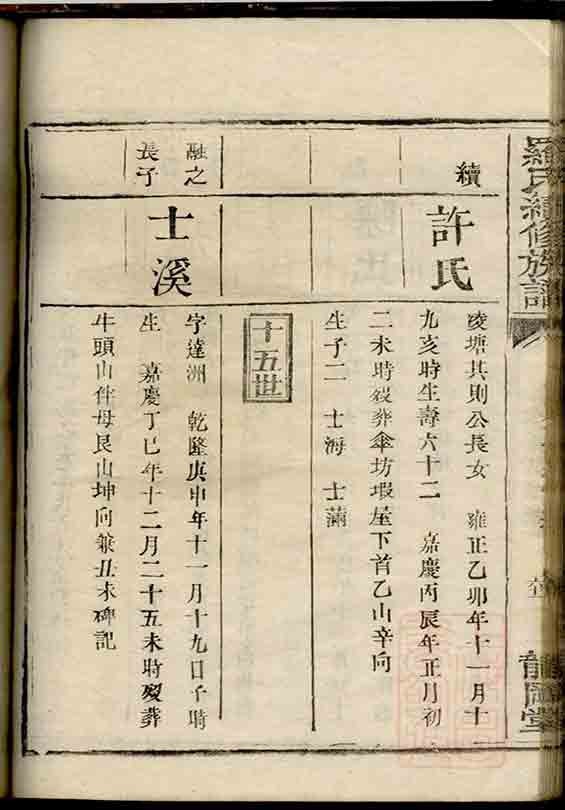 羅氏續修族譜
續
許氏
陵塘其則公長女 雍正乙卯年十一月十
九亥時生壽六十二 嘉慶丙辰年正月初
二未時歿葬傘坊塅屋下首乙山辛向
生子二 士海 士藹
十五世
融之
長子
士溪
字達洲 乾隆庚申年十一月十九日子時
生 嘉慶丁巳年十二月二十五未時歿葬
牛頭山伴母艮山坤向兼丑未碑記